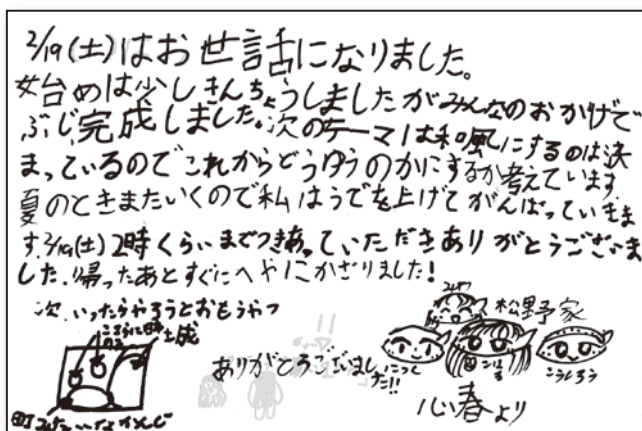 2/19(土)はお世話になりました。
始めは少しきんちょうしましたがみんなのおかげで
ぶじ完成しました。次のテーマは和風にするのは決
まっているのでこれからどうゆうのかにするか考えています。
夏のときまたいくので私はうでを上げてがんばっていきま
す。2/19(土)2時くらいまでつきあっていただきありがとうございま
した。帰ったあとすぐにへやにかざりました!
次、いったらやろうとおもうやつ
みたいなかんじ
ありがとうございました!!
松野家
にっく
こはる
こうしろう
心春より